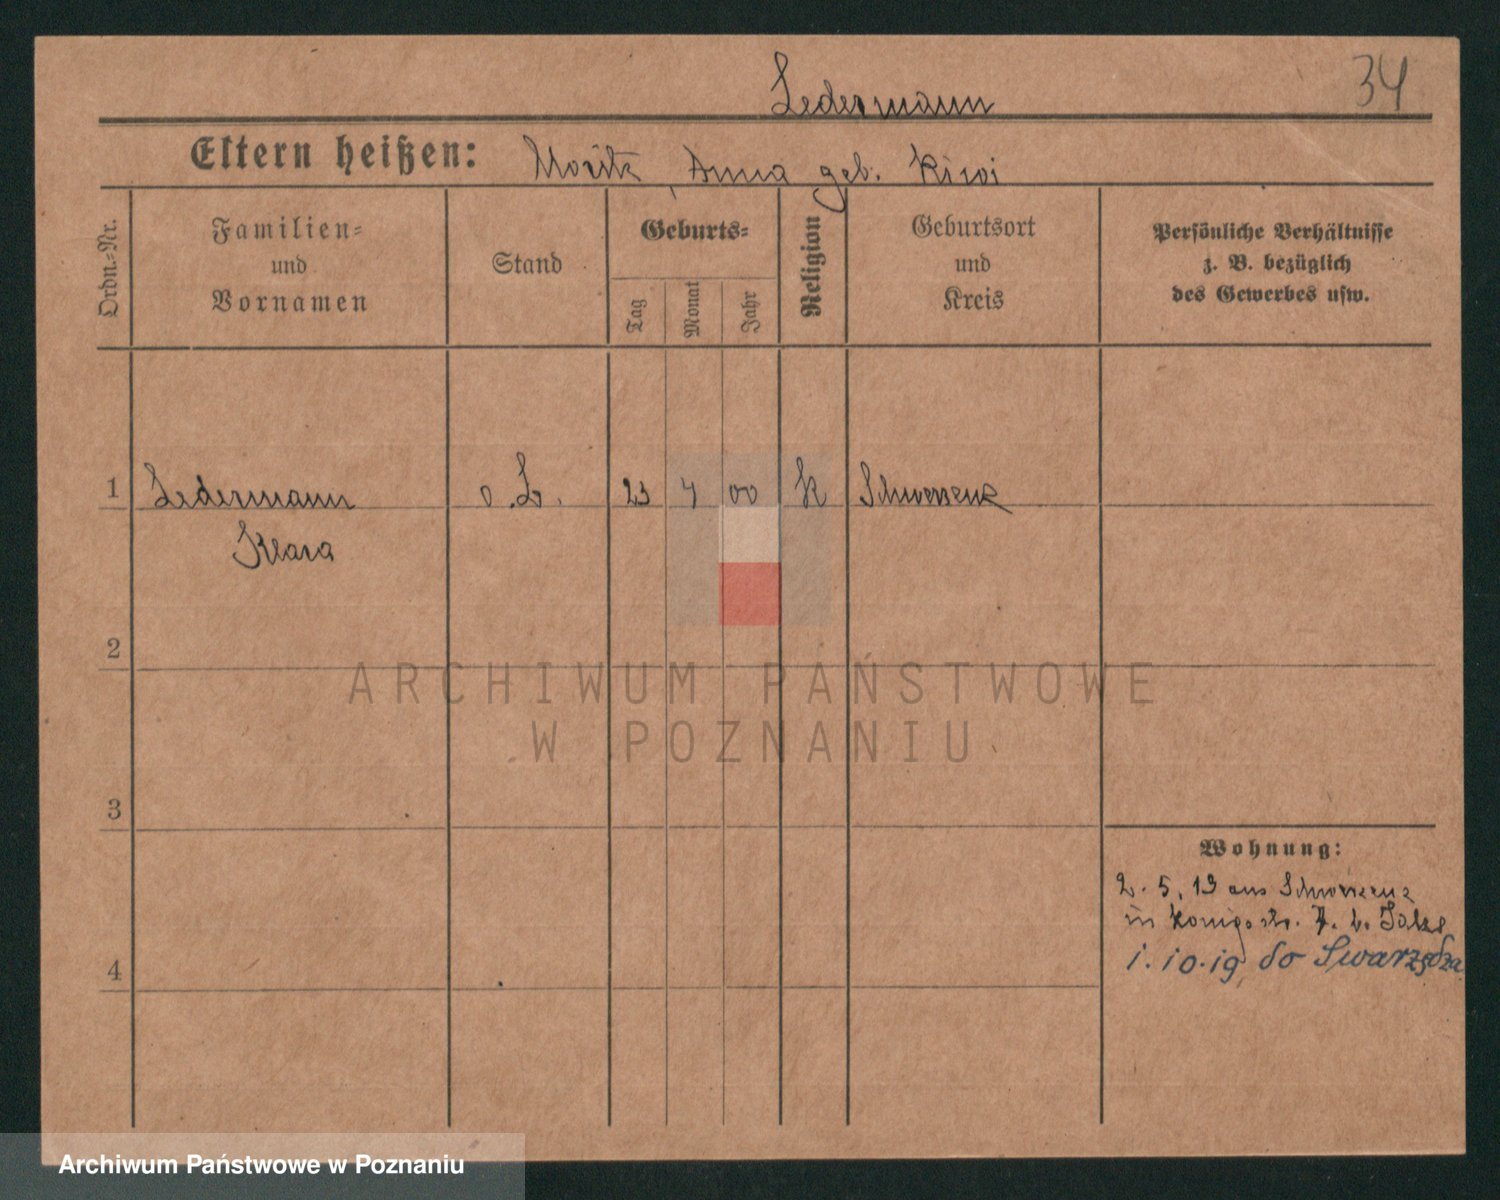 34
Ledermann
Eltern heißen: Moritz, Anna geb. Kiwi
Ordn.-Nr.
Familien-
und
Vornamen
Stand
Geburts-
Tag
Monat
Jahr
Religion
Geburtsort
und
Kreis
Persönliche Verhältnisse
z. B. bezüglich
des Gewerbes usw.
1 Ledermann 23 4 00 K Schwersenz
Klara
2
ARCHIWUM PAŃSTWOWE
W POZNANIU
3
Wohnung:
2. 5. 19 aus Schwersenz
in Königsstr.
1.10.19 do Swarzędza
4
Archiwum Państwowe w Poznaniu